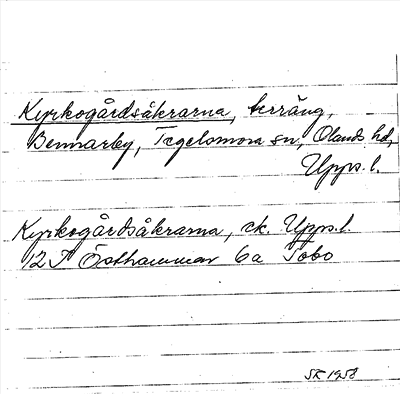 Kyrkogårdsåkrarna, terräng,
Bennarby, Tegelsmora sn, Olands hd,
Upps. l.
Kyrkogårdsåkrarna, ek. Upps. l.
12I Östhammar 6a Tobo
SK 1958